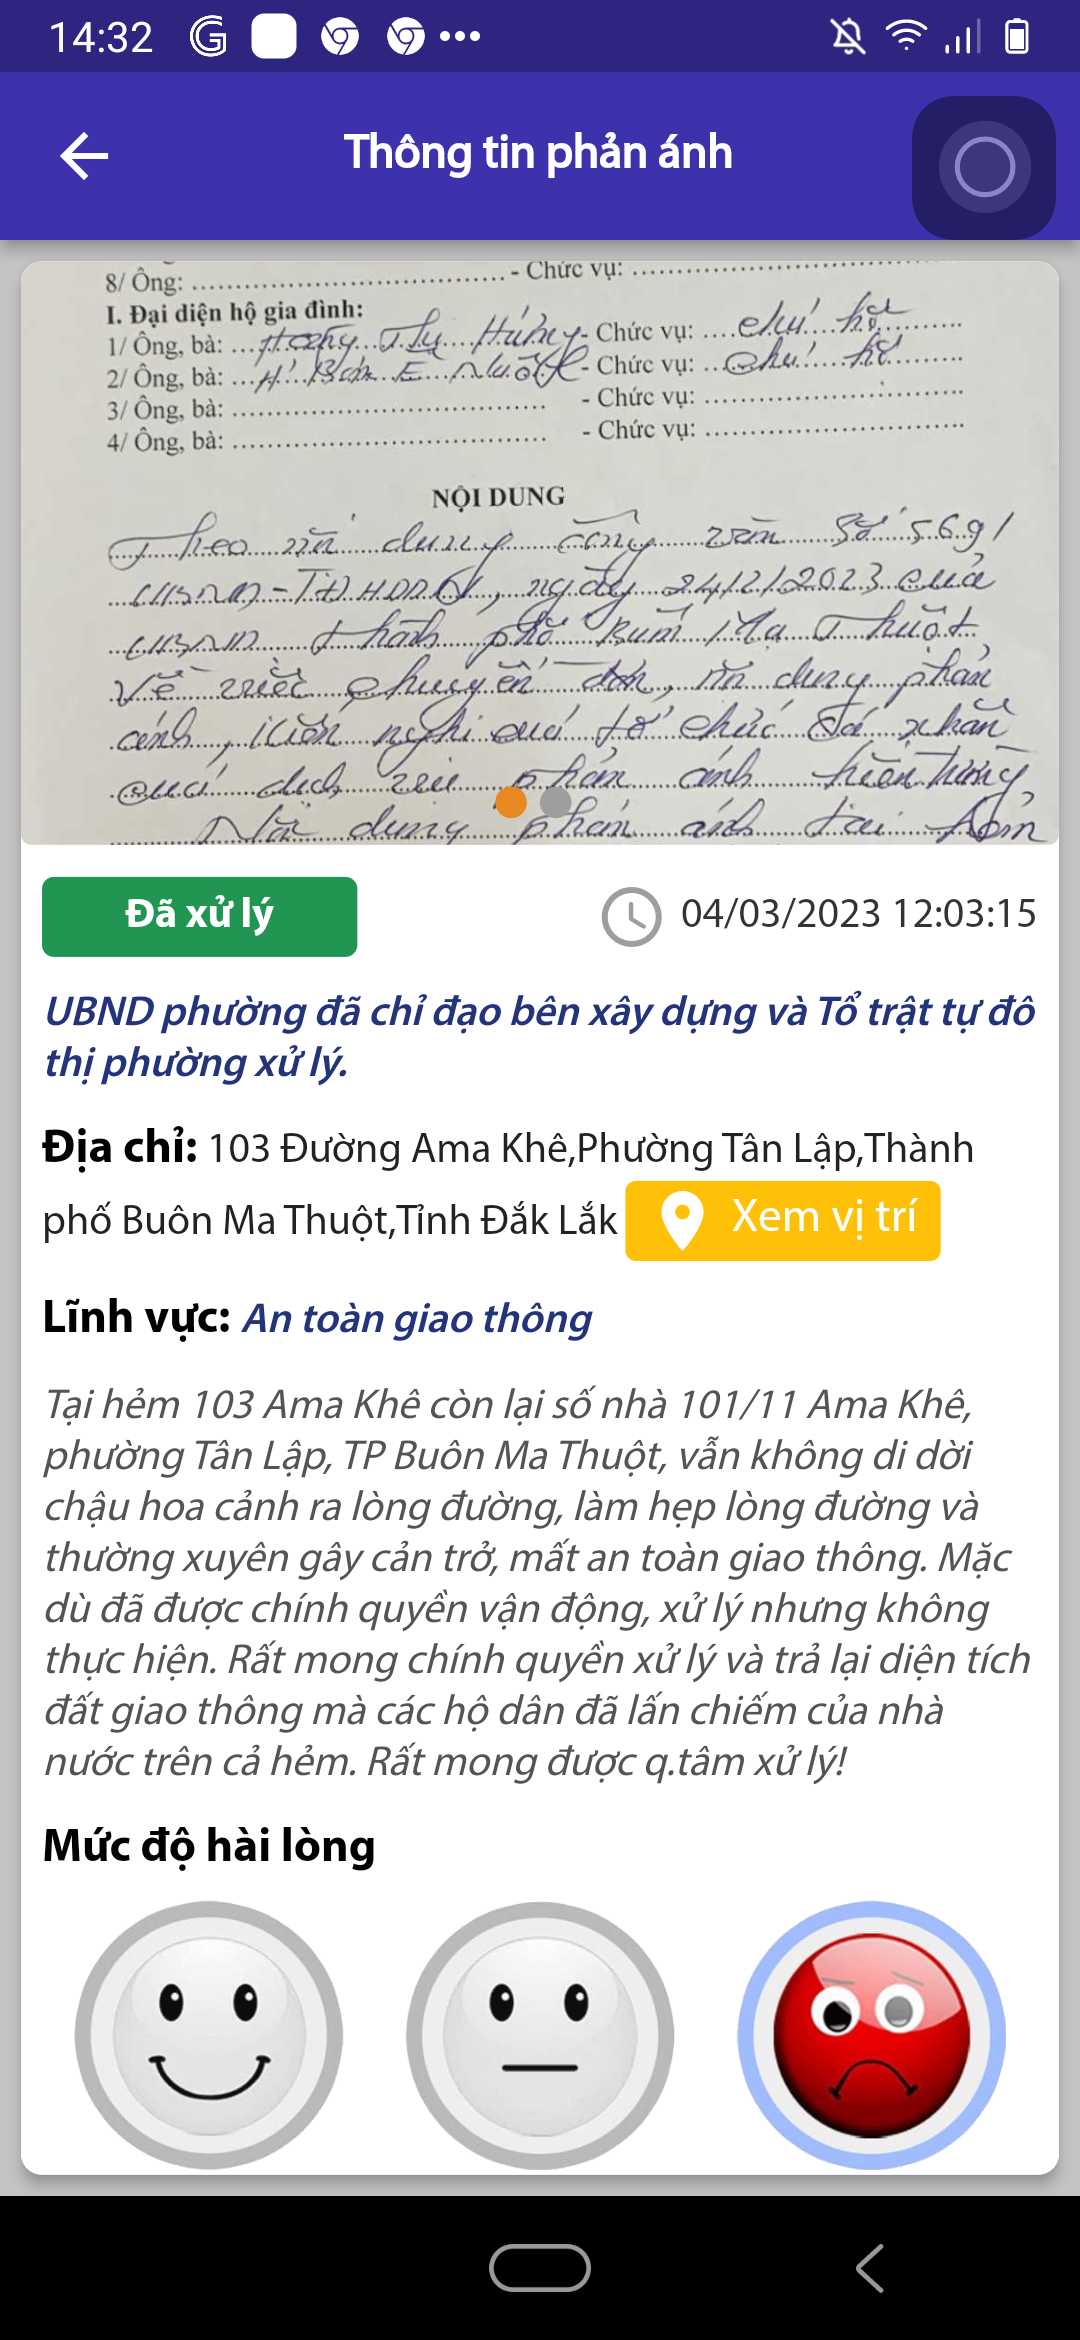 14:32
Thông tin phản ánh
8/ Ông: - Chức vụ:
I. Đại diện hộ gia đình:
1/ Ông, bà: - Chức vụ: chủ hộ
2/ Ông, bà: - Chức vụ: chủ hộ
3/ Ông, bà: - Chức vụ:
4/ Ông, bà: - Chức vụ:
NỘI DUNG
Theo nội dung công văn Số 569/
UBND-TĐHĐND, ngày 24/2/2023 của
UBND thành phố Buôn Ma Thuột
Về việc chuyển đơn, nội dung phản
ánh, kiến nghị của tổ chức cá nhân
phản ánh hiện trường
Nội dung phản ánh tại hẻm
Đã xử lý
04/03/2023 12:03:15
UBND phường đã chỉ đạo bên xây dựng và Tổ trật tự đô
thị phường xử lý.
Địa chỉ: 103 Đường Ama Khê,Phường Tân Lập,Thành
phố Buôn Ma Thuột,Tỉnh Đắk Lắk Xem vị trí
Lĩnh vực: An toàn giao thông
Tại hẻm 103 Ama Khê còn lại số nhà 101/11 Ama Khê,
phường Tân Lập, TP Buôn Ma Thuột, vẫn không di dời
chậu hoa cảnh ra lòng đường, làm hẹp lòng đường và
thường xuyên gây cản trở, mất an toàn giao thông. Mặc
dù đã được chính quyền vận động, xử lý nhưng không
thực hiện. Rất mong chính quyền xử lý và trả lại diện tích
đất giao thông mà các hộ dân đã lấn chiếm của nhà
nước trên cả hẻm. Rất mong được q.tâm xử lý!
Mức độ hài lòng